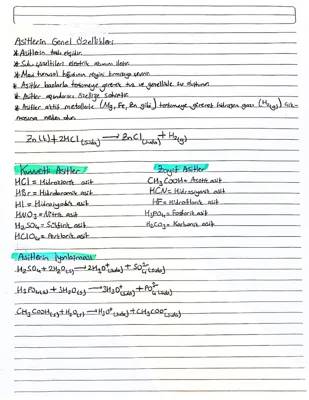 Asitlerin Genel Özellikleri
* Asitlerin tadı ekşidir.
* Sulu çözeltileri elektrik akımını iletir.
* Mavi turnusol kağıdının rengini kırmızıya çevirir.
* Asitler bazlarla tepkimeye girerek tuz ve genellikle su oluşturur.
* Asitler aşındırıcı özelliğe sahiptir.
* Asitler aktif metallerle (Mg, Fe, Zn gibi) tepkimeye girerek hidrojen gazı (H₂(g)) çık-
masına neden olur.
Zn(k)+2HCl(suda) → ZnCl(suda)+H₂(g)
Kuvvetli Asitler Zayıf Asitler
HCl = Hidroklorik asit CH₃COOH = Asetik asit
HBr = Hidrobromik asit HCN = Hidrosiyanik asit
HI = Hidroiyodik asit HF = Hidroflorik asit
HNO₃ = Nitrik asit H₃PO₄ = Fosforik asit
H₂SO₄ = Sülfürik asit H₂CO₃ = Karbonik asit
HClO₄ = Perklorik asit
Asitlerin İyonlaşması
H₂SO₄+2H₂O(s) → 2H₃O⁺(suda)+SO₄²⁻(suda)
H₃PO₄(s)+3H₂O(s) → 3H₃O⁺(suda)+PO₄³⁻(suda)
CH₃COOH(s)+H₂O(s) → H₃O⁺(suda)+CH₃COO⁻(suda)